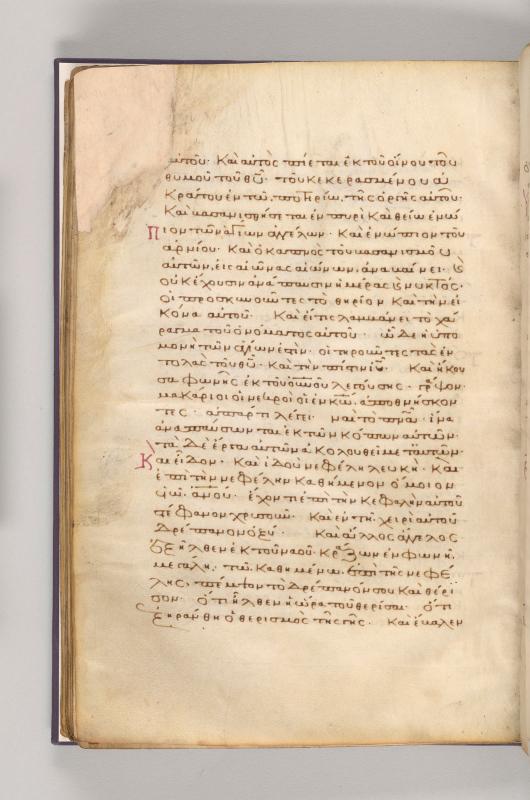 αὐτοῦ· Καὶ αὐτὸς πίεται ἐκ τοῦ οἴνου τοῦ
θυμοῦ τοῦ θ͞υ· τοῦ κεκερασμένου ἀ
κράτου ἐν τῶ ποτηρίω τῆς ὀργῆς αὐτοῦ·
Καὶ βασανισθήσεται ἐν πυρὶ καὶ θείω ἐνώ
πιον τῶν ἁγίων ἀγγέλων· Καὶ ἐνώπιον τοῦ
ἀρνίου· Καὶ ὁ καπνὸς τοῦ βασανισμοῦ
αὐτῶν, εἰς αἰῶνας αἰώνων, ἀναβαίνει· καὶ
οὐκ ἔχουσιν ἀνάπαυσιν ἡμέρας καὶ νυκτός·
οἱ προσκυνοῦντες τὸ θηρίον καὶ τὴν εἰ
κόνα αὐτοῦ· Καὶ εἴ τις λαμβάνει τὸ χά
ραγμα τοῦ ὀνόματος αὐτοῦ· ὧδε ἡ ὑπο
μονὴ τῶν ἁγίων ἐστίν· οἱ τηροῦντες τὰς ἐν
τολὰς τοῦ θ͞υ· καὶ τὴν πίστιν ι͞υ· Καὶ ἤκου
σα φωνῆς ἐκ τοῦ οὐ͞νου λεγούσης· γράψον·
μακάριοι οἱ νεκροὶ οἱ ἐν κ͞ω ἀποθνήσκον
τες· ἀπάρτι λέγει· ναὶ τὸ πν͞α· ἵνα
ἀναπαύσωνται ἐκ τῶν κόπων αὐτῶν·
τὰ δὲ ἔργα αὐτῶν ἀκολουθεῖ μετ αὐτῶν·
Καὶ εἶδον· Καὶ ἰδοὺ νεφέλη λευκή· Καὶ
ἐπὶ τὴν νεφέλην καθήμενον ὅμοιον
υἱῶ ἀν͞ου· ἔχον τι ἐπὶ τὴν κεφαλὴν αὐτοῦ
στέφανον χρυσοῦν· Καὶ ἐν τῆ χειρὶ αὐτοῦ
δρέπανον ὀξύ· Καὶ ἄλλος ἄγγελος
ἐξῆλθεν ἐκ τοῦ ναοῦ κράζων ἐν φωνῆ
μεγάλη, τῶ καθημένω ἐπὶ τῆς νεφέ
λης, πέμψον τὸ δρέπανόν σου καὶ θέρι
σον· ὅτι ἦλθεν ἡ ὥρα τοῦ θερίσαι· ὅτι
ἐξηράνθη ὁ θερισμὸς τῆς γῆς· Καὶ ἔβαλεν